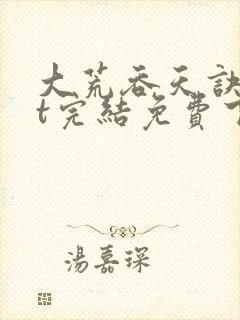 大荒吞天訣
t完結免費
湯嘉琛